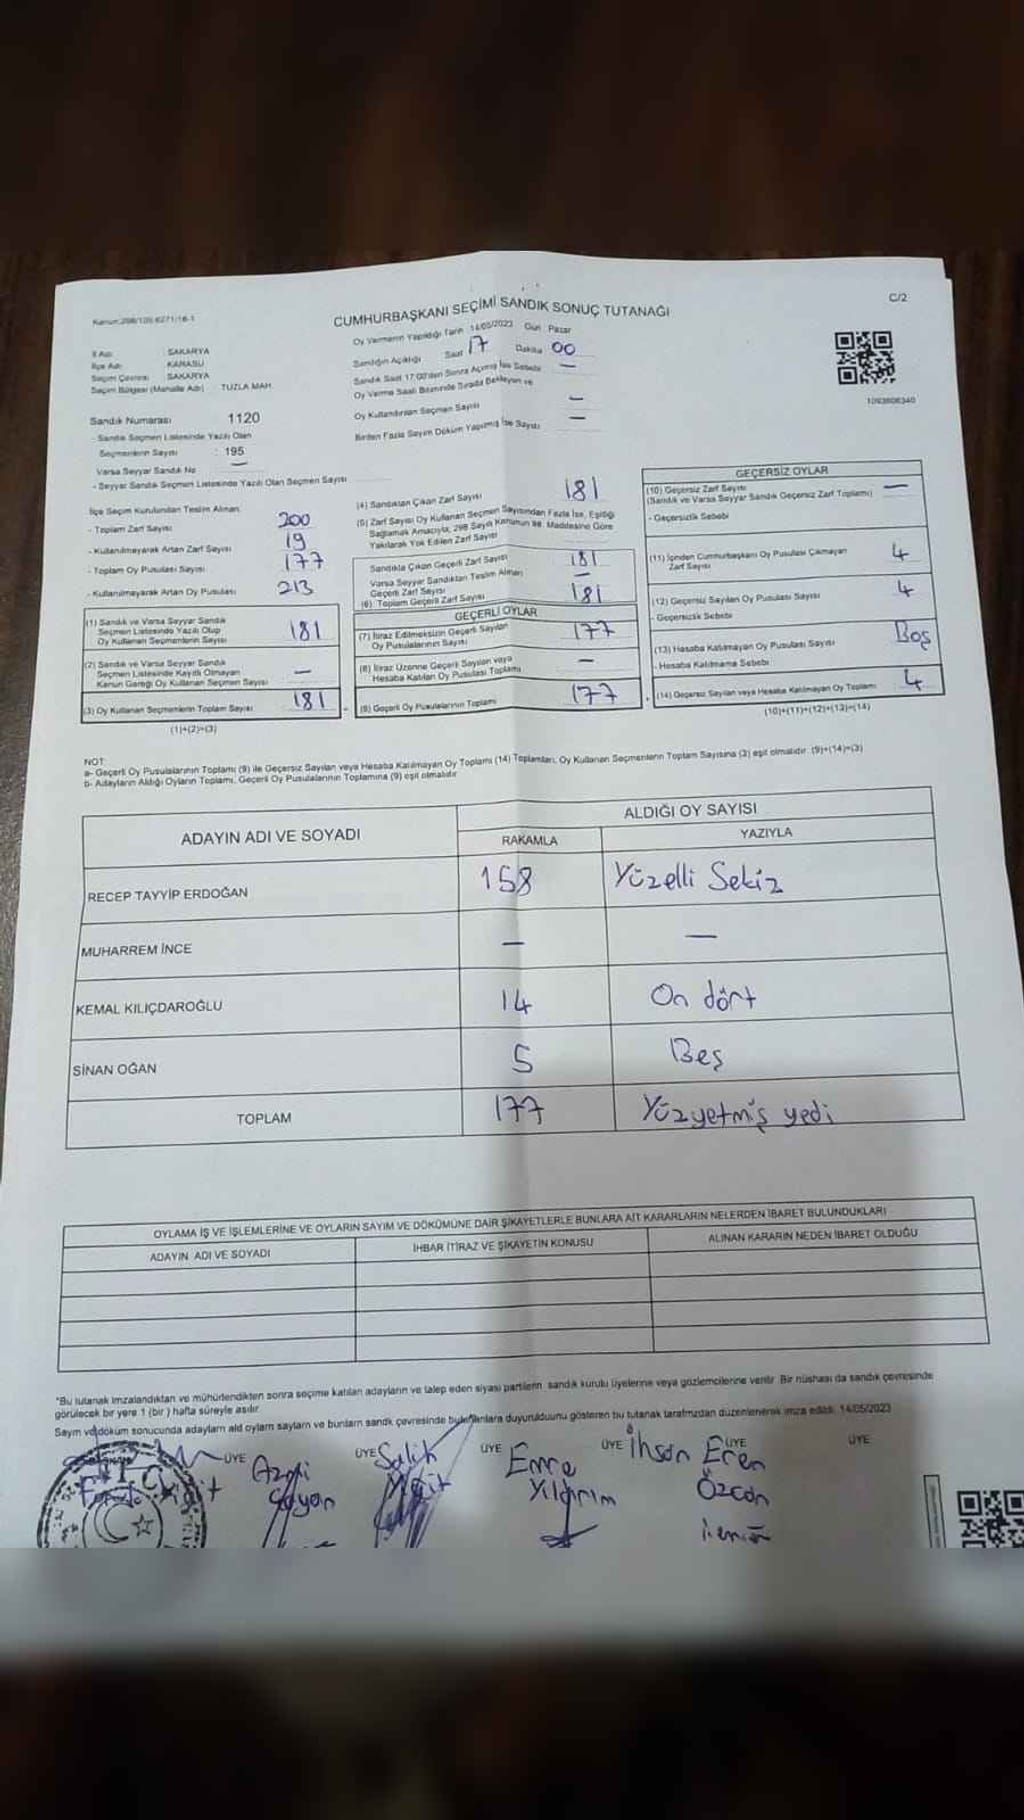 CUMHURBAŞKANI SEÇİMİ SANDIK SONUÇ TUTANAĞI
C/2
İl Adı : SAKARYA
İlçe Adı : KARASU
Seçim Çevresi : SAKARYA
Seçim Bölgesi (Mahalle Adı) : TUZLA MAH.
Sandık Numarası : 1120
- Sandık Seçmen Listesinde Yazılı Olan
Seçmenlerin Sayısı : 195
Varsa Seyyar Sandık No —
- Seyyar Sandık Seçmen Listesinde Yazılı Olan Seçmen Sayısı
Oy Vermenin Yapıldığı Tarih 14/05/2023 Gün Pazar
Sandığın Açıldığı Saat 17 Dakika 00
Sandık Saat 17:00'den Sonra Açılmış İse Sebebi —
Oy Verme Saati Bitiminde Sırada Bekleyen ve
Oy Kullandırılan Seçmen Sayısı —
Birden Fazla Sayım Döküm Yapılmış İse Sayısı —
1093606340
İlçe Seçim Kurulundan Teslim Alınan
- Toplam Zarf Sayısı 200
- Kullanılmayarak Artan Zarf Sayısı 19
- Toplam Oy Pusulası Sayısı 177
- Kullanılmayarak Artan Oy Pusulası 213
(1) Sandık ve Varsa Seyyar Sandık
Seçmen Listesinde Yazılı Olup
Oy Kullanan Seçmenlerin Sayısı 181
(2) Sandık ve Varsa Seyyar Sandık
Seçmen Listesinde Kayıtlı Olmayan
Kanun Gereği Oy Kullanan Seçmen Sayısı —
(3) Oy Kullanan Seçmenlerin Toplam Sayısı 181
(1)+(2)=(3)
(4) Sandıktan Çıkan Zarf Sayısı 181
(5) Zarf Sayısı Oy Kullanan Seçmen Sayısından Fazla İse, Eşitliği
Sağlamak Amacıyla, 298 Sayılı Kanunun 98. Maddesine Göre
Yakılarak Yok Edilen Zarf Sayısı
Sandıkta Çıkan Geçerli Zarf Sayısı 181
Varsa Seyyar Sandıktan Teslim Alınan
Geçerli Zarf Sayısı —
(6) Toplam Geçerli Zarf Sayısı 181
GEÇERLİ OYLAR
(7) İtiraz Edilmeksizin Geçerli Sayılan
Oy Pusulalarının Sayısı 177
(8) İtiraz Üzerine Geçerli Sayılan veya
Hesaba Katılan Oy Pusulası Toplamı —
(9) Geçerli Oy Pusulalarının Toplamı 177
GEÇERSİZ OYLAR
(10) Geçersiz Zarf Sayısı —
(Sandık ve Varsa Seyyar Sandık Geçersiz Zarf Toplamı)
- Geçersizlik Sebebi
(11) İçinden Cumhurbaşkanı Oy Pusulası Çıkmayan
Zarf Sayısı 4
(12) Geçersiz Sayılan Oy Pusulası Sayısı 4
- Geçersizlik Sebebi
Boş
(13) Hesaba Katılmayan Oy Pusulası Sayısı
- Hesaba Katılmama Sebebi
(14) Geçersiz Sayılan veya Hesaba Katılmayan Oy Toplamı 4
(10)+(11)+(12)+(13)=(14)
NOT:
a- Geçerli Oy Pusulalarının Toplamı (9) ile Geçersiz Sayılan veya Hesaba Katılmayan Oy Toplamı (14) Toplamları, Oy Kullanan Seçmenlerin Toplam Sayısına (3) eşit olmalıdır. (9)+(14)=(3)
b- Adayların Aldığı Oyların Toplamı, Geçerli Oy Pusulalarının Toplamına (9) eşit olmalıdır.
ADAYIN ADI VE SOYADI
ALDIĞI OY SAYISI
RAKAMLA YAZIYLA
RECEP TAYYİP ERDOĞAN 158 Yüzelli Sekiz
MUHARREM İNCE — —
KEMAL KILIÇDAROĞLU 14 On dört
SİNAN OĞAN 5 Beş
TOPLAM 177 Yüzyetmiş yedi
OYLAMA İŞ VE İŞLEMLERİNE VE OYLARIN SAYIM VE DÖKÜMÜNE DAİR ŞİKAYETLERLE BUNLARA AİT KARARLARIN NELERDEN İBARET BULUNDUKLARI
ADAYIN ADI VE SOYADI İHBAR İTİRAZ VE ŞİKAYETİN KONUSU ALINAN KARARIN NEDEN İBARET OLDUĞU
"Bu tutanak imzalandıktan ve mühürlendikten sonra seçime katılan adayların ve talep eden siyasi partilerin sandık kurulu üyelerine veya gözlemcilerine verilir. Bir nüshası da sandık çevresinde
görülecek bir yere 1 (bir) hafta süreyle asılır.
Sayım ve döküm sonucunda adayların aldığı oyların sayıları ve bunların sandık çevresinde bulunanlara duyurulduğunu gösteren bu tutanak tarafımızdan düzenlenerek imza edildi. 14/05/2023
ÜYE ÜYE ÜYE ÜYE ÜYE ÜYE
Salih
Emre
Yıldırım
İhsan Eren
Özcan